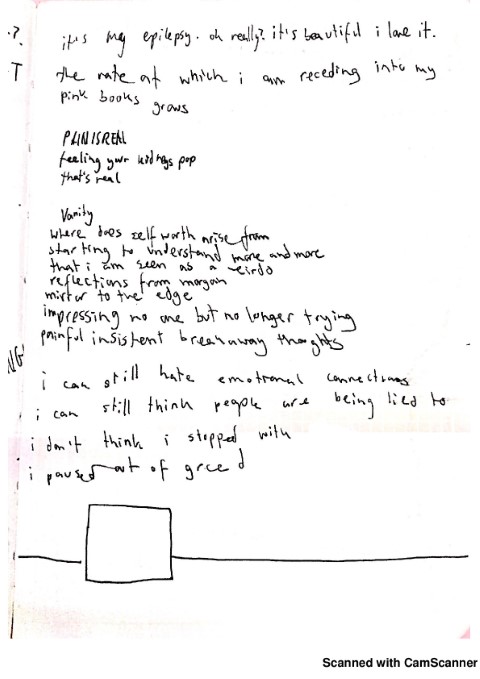 .?
it's my epilepsy. oh really? it's beautiful i love it.
T
the rate at which i am receding into my
pink books grows
PAINISREAL
feeling your kidneys pop
that's real
Vanity
where does self worth arise from
starting to understand more and more
that i am seen as a weirdo
reflections from margin
mirror to the edge
impressing no one but no longer trying
painful insistent breakaway thoughts
NG!
i can still hate emotional connections
i can still think people are being lied to
i don't think i stopped with
i paused out of greed
Scanned with CamScanner